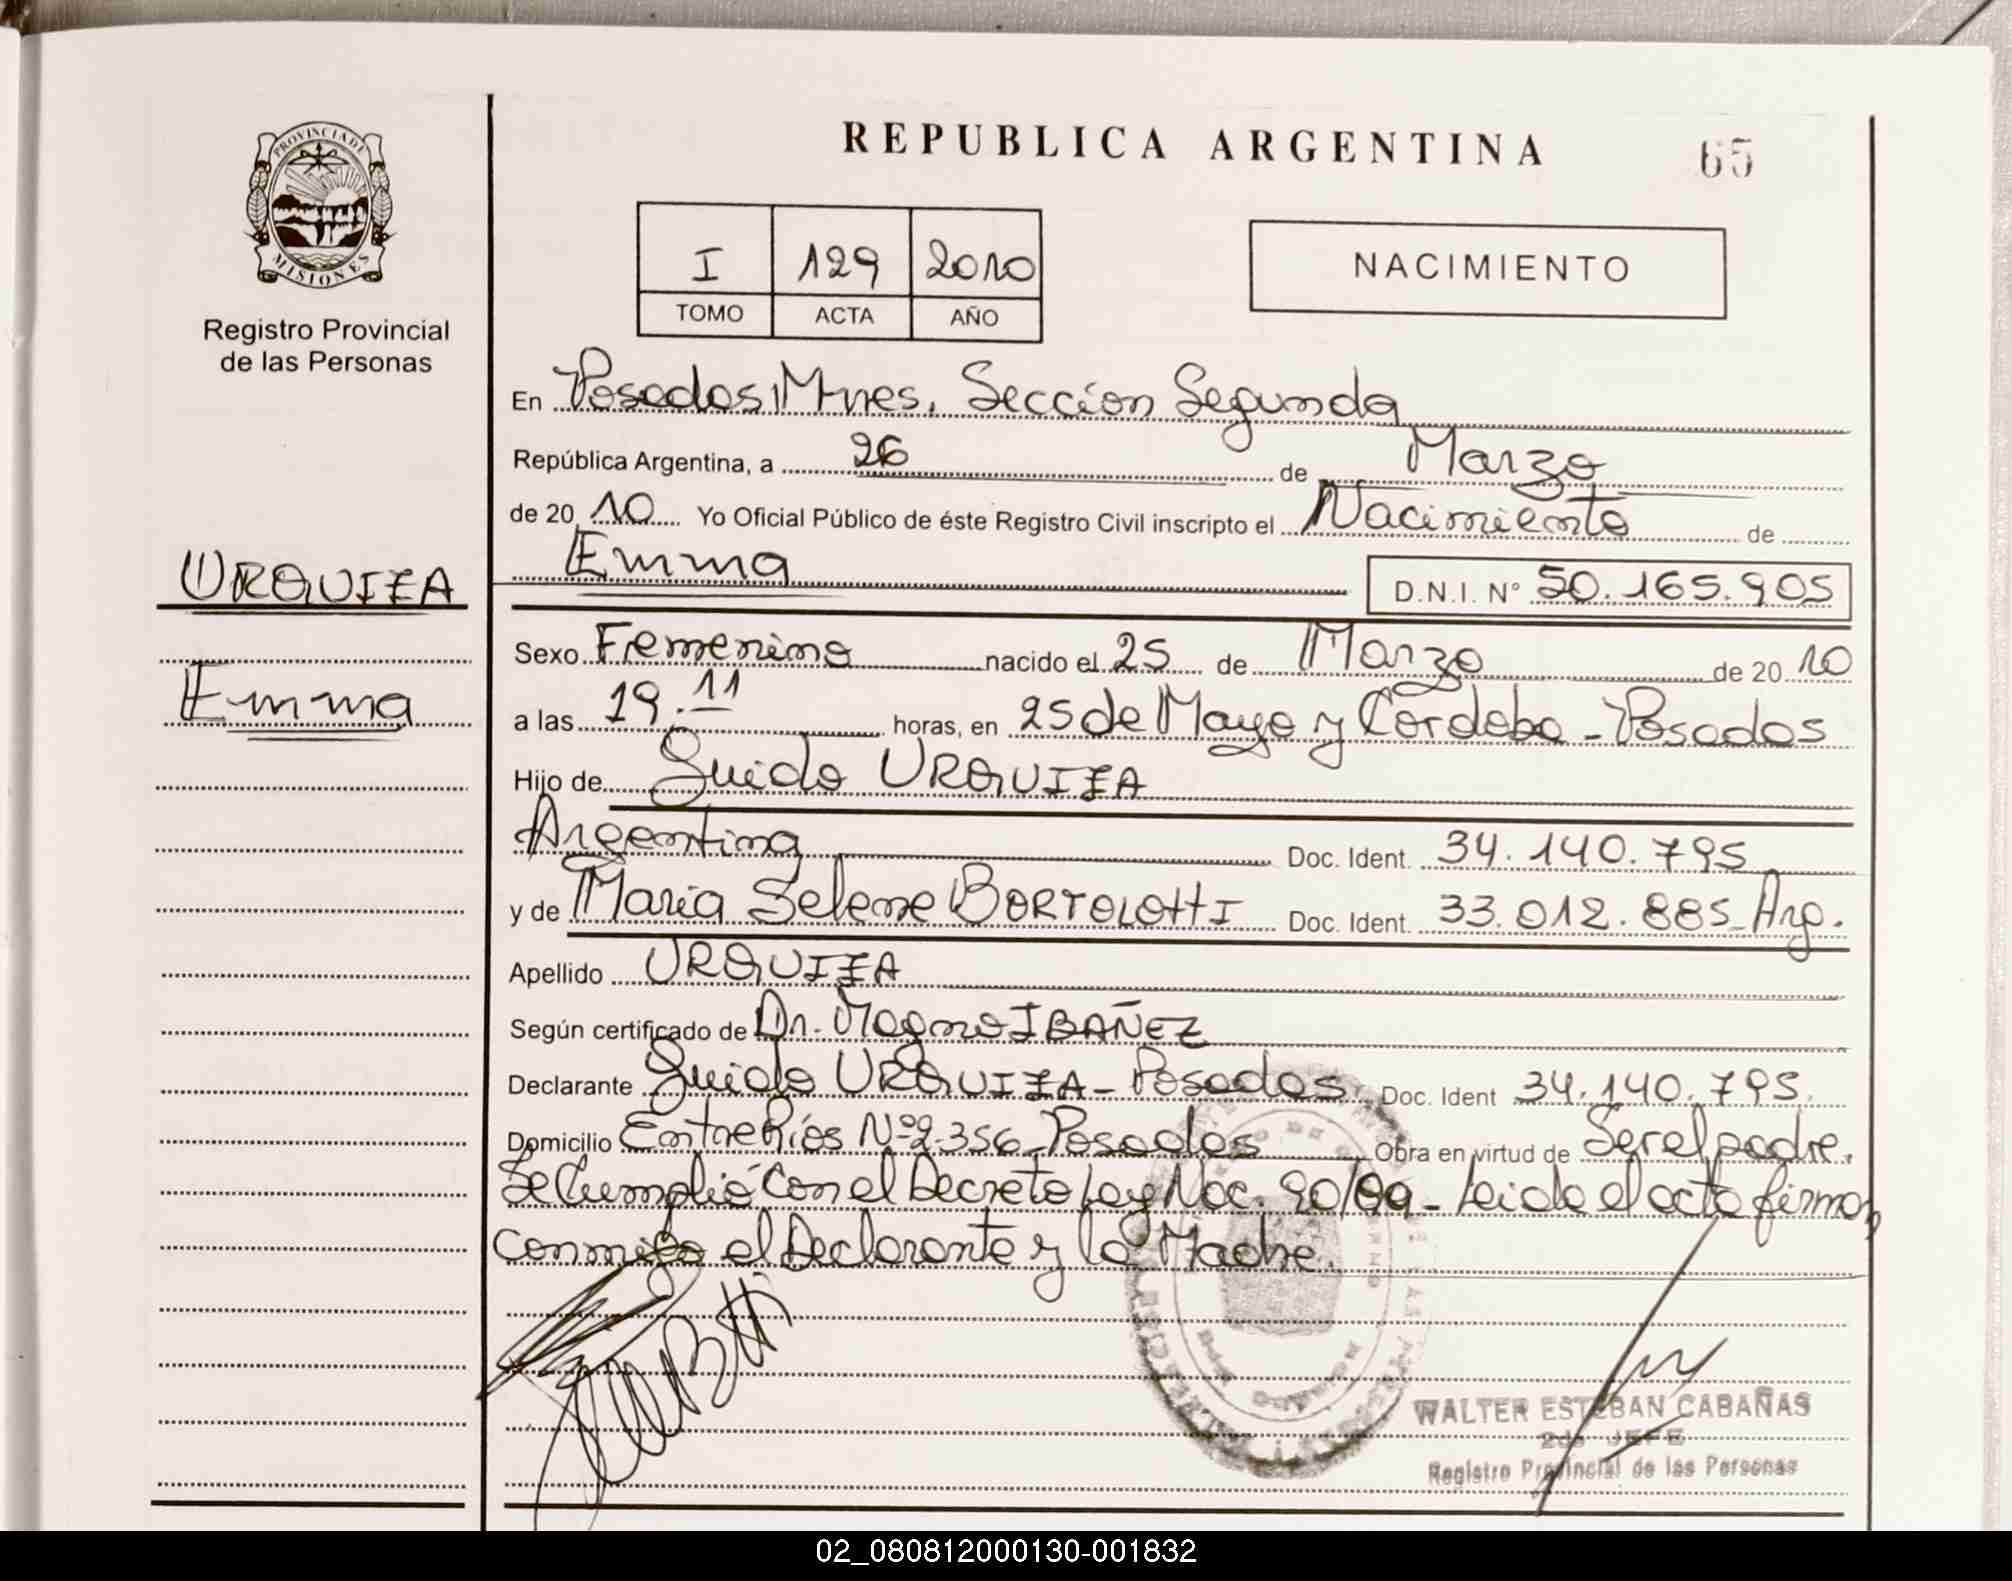 REPUBLICA ARGENTINA
65
PROVINCIA DE
MISIONES
Registro Provincial
de las Personas
I 129 2010
TOMO ACTA AÑO
NACIMIENTO
En Posadas, Mnes. Sección Segunda
República Argentina, a 26 de Marzo
de 20 10 Yo Oficial Público de éste Registro Civil inscripto el Nacimiento de
Emma D.N.I. N° 50.165.905
URQUIZA
Emma
Sexo Femenino nacido el 25 de Marzo de 20 10
a las 19.11 horas, en 25 de Mayo y Cordoba - Posadas
Hijo de Guido URQUIZA
Argentina Doc. Ident. 34.140.795
y de Maria Selene BORTOLOttI Doc. Ident. 33.012.885 Arg.
Apellido URQUIZA
Según certificado de Dr. Magno IBAÑEZ
Declarante Guido URQUIZA - Posadas Doc. Ident 34.140.795.
Domicilio Entre Ríos Nº 2.356 - Posadas Obra en virtud de Ser el padre.
Se Cumplió Con el Decreto Ley Nac. 90/09 - Leida el acta firman
conmigo el Declarante y la Madre.
WALTER ESTEBAN CABAÑAS
2do JEFE
Registro Provincial de las Personas
02_080812000130-001832